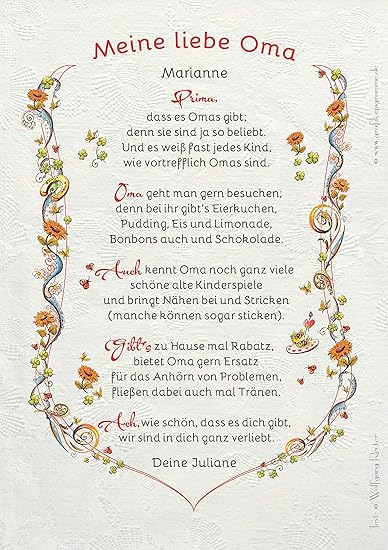 Meine liebe Oma
Marianne
Prima,
dass es Omas gibt;
denn sie sind ja so beliebt.
Und es weiß fast jedes Kind,
wie vortrefflich Omas sind.
Oma geht man gern besuchen;
denn bei ihr gibt's Eierkuchen,
Pudding, Eis und Limonade,
Bonbons auch und Schokolade.
Auch kennt Oma noch ganz viele
schöne alte Kinderspiele
und bringt Nähen bei und Stricken
(manche können sogar sticken).
Gibt's zu Hause mal Rabatz,
bietet Oma gern Ersatz
für das Anhörn von Problemen,
fließen dabei auch mal Tränen.
Ach, wie schön, dass es dich gibt,
wir sind in dich ganz verliebt.
Deine Juliane
Text: © Wolfgang